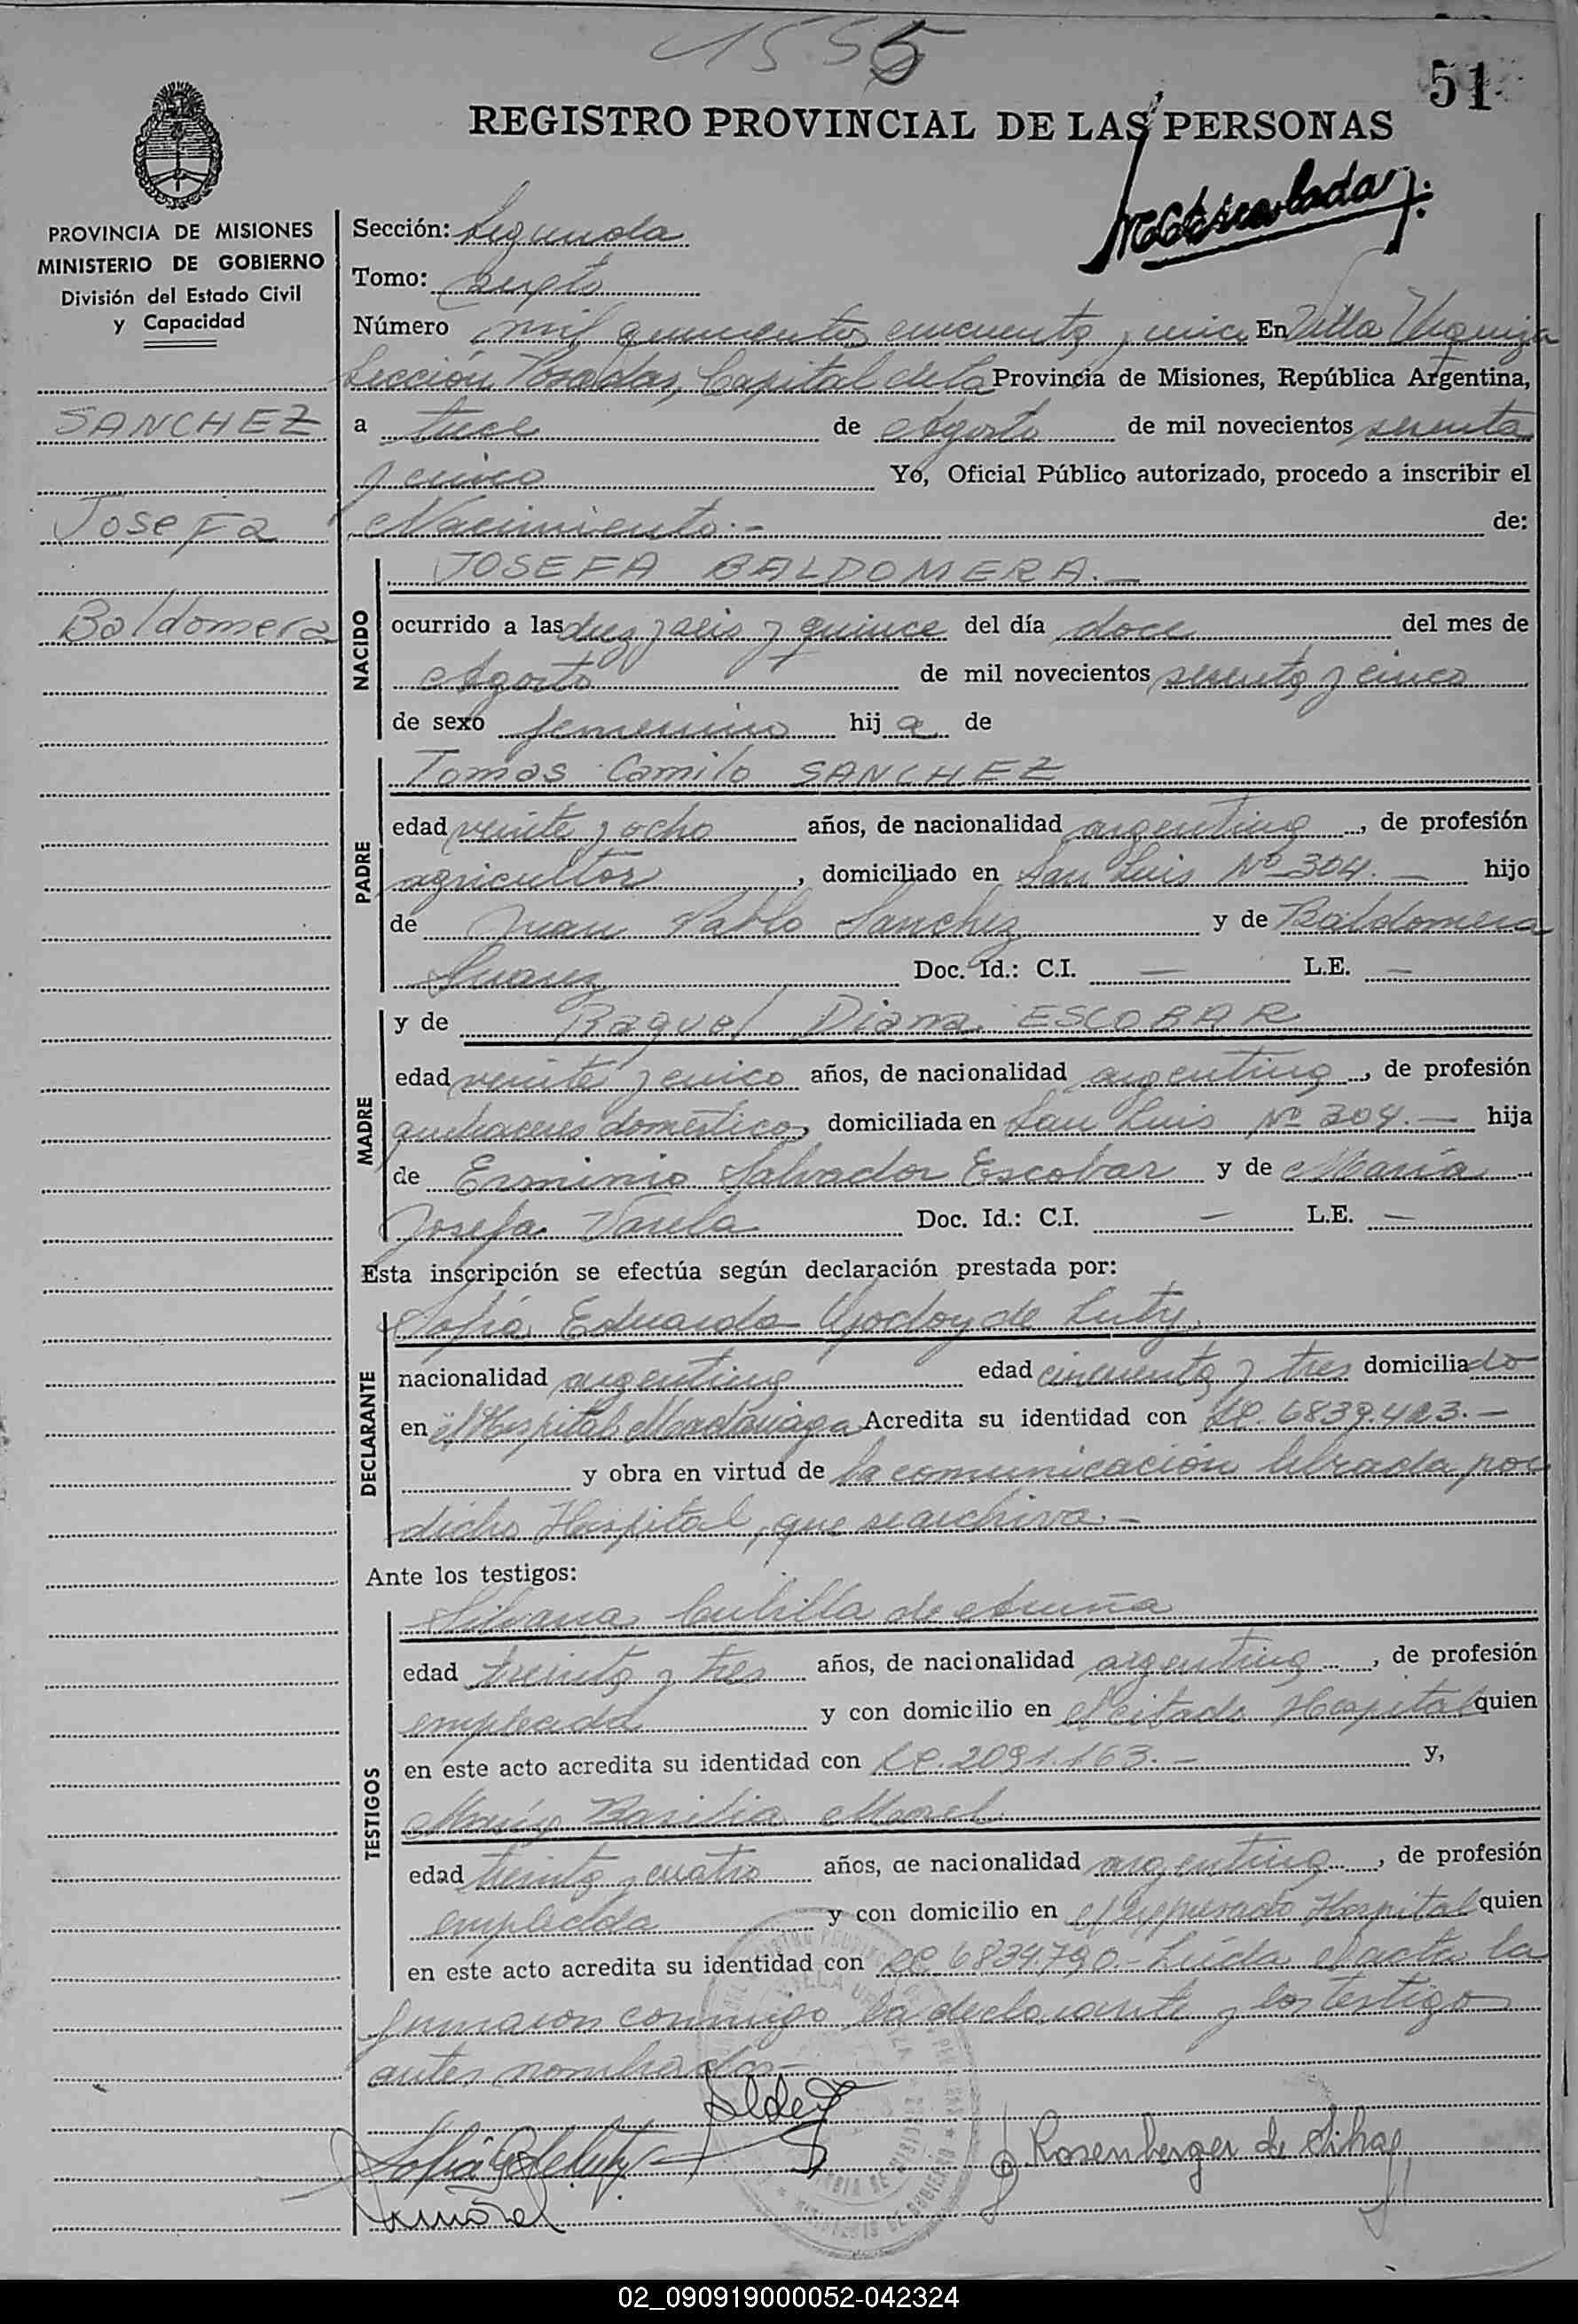 1555
51
REGISTRO PROVINCIAL DE LAS PERSONAS
PROVINCIA DE MISIONES
MINISTERIO DE GOBIERNO
División del Estado Civil
y Capacidad
SANCHEZ
Josefa
Baldomera
Sección: Segunda
Tomo: sexto
Número mil quinientos cincuenta y cinco En Villa Urquiza
Sección Posadas, Capital de la Provincia de Misiones, República Argentina,
a trece de Agosto de mil novecientos sesenta
y cinco Yo, Oficial Público autorizado, procedo a inscribir el
Nacimiento.- de:
NACIDO
JOSEFA BALDOMERA.-
ocurrido a las diez y seis y quince del día doce del mes de
Agosto de mil novecientos sesenta y cinco
de sexo femenino hija de
PADRE
Tomas Camilo SANCHEZ
edad veinte y ocho años, de nacionalidad argentina, de profesión
agricultor, domiciliado en San Luis Nº 304.- hijo
de Juan Pablo Sanchez y de Baldomera
Suarez Doc. Id.: C.I. — L.E. —
MADRE
y de Raquel Diana ESCOBAR
edad veinte y cinco años, de nacionalidad argentina, de profesión
quehaceres domésticos, domiciliada en San Luis Nº 304.- hija
de Erminio Salvador Escobar y de María
Josefa Varela Doc. Id.: C.I. — L.E. —
Esta inscripción se efectúa según declaración prestada por:
DECLARANTE
Sofía Eduarda Godoy de Luty
nacionalidad argentina edad cincuenta y tres domiciliado
en el Hospital Madariaga Acredita su identidad con LC. 6839.423.-
y obra en virtud de la comunicación librada por
dicho Hospital, que se archiva.-
Ante los testigos:
TESTIGOS
Silvana Cubilla de Acuña
edad treinta y tres años, de nacionalidad argentina, de profesión
empleada y con domicilio en el citado Hospital quien
en este acto acredita su identidad con LC. 2091.163.- y,
María Basilia Morel
edad treinta y cuatro años, de nacionalidad argentina, de profesión
empleada y con domicilio en el expresado Hospital quien
en este acto acredita su identidad con LC 6834.790.- Leída el acta la
firmaron conmigo la declarante y los testigos
antes nombrados.-
Rosenberger de
02_090919000052-042324